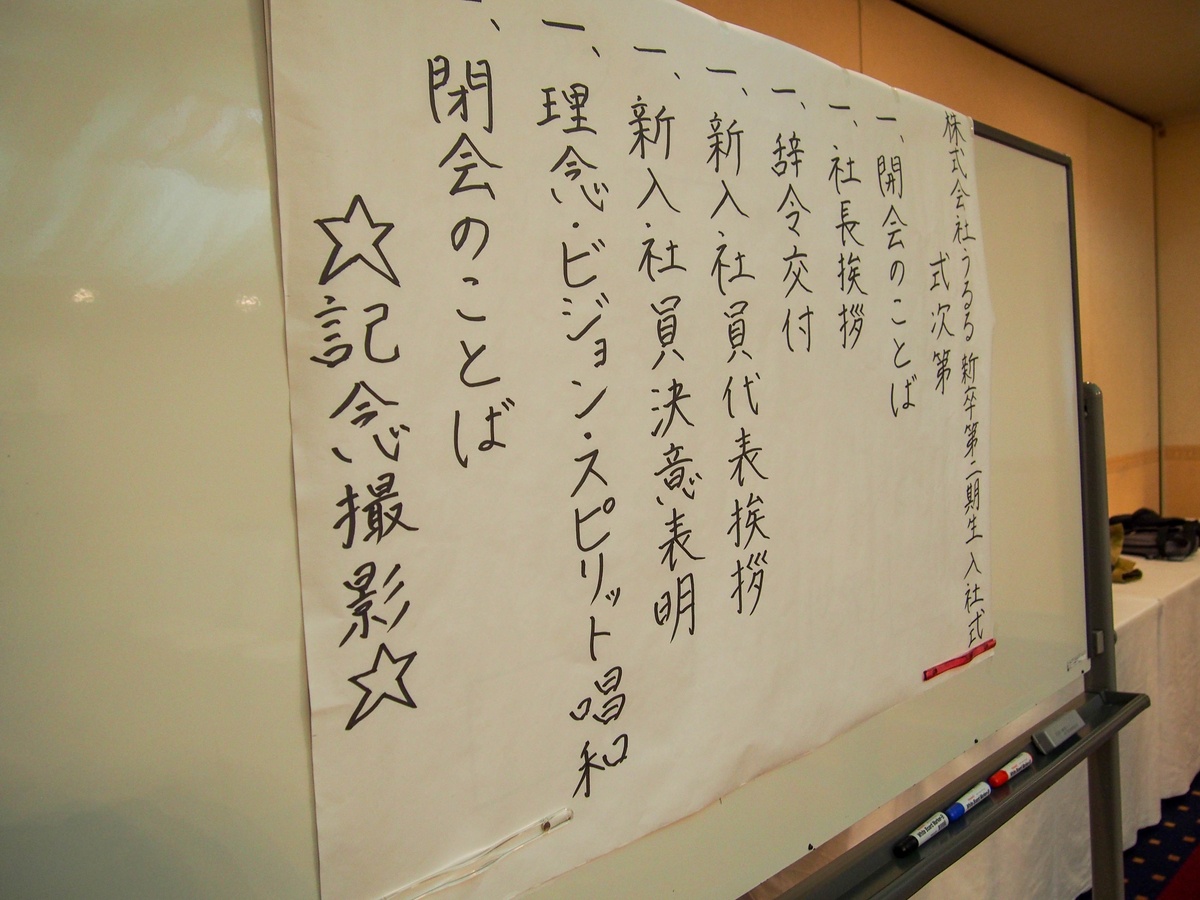 株式会社うるる 新卒第二期生 入社式
式次第
一、開会のことば
一、社長挨拶
一、辞令交付
一、新入社員代表挨拶
一、新入社員決意表明
一、理念・ビジョン・スピリット唱和
一、閉会のことば
☆記念撮影☆